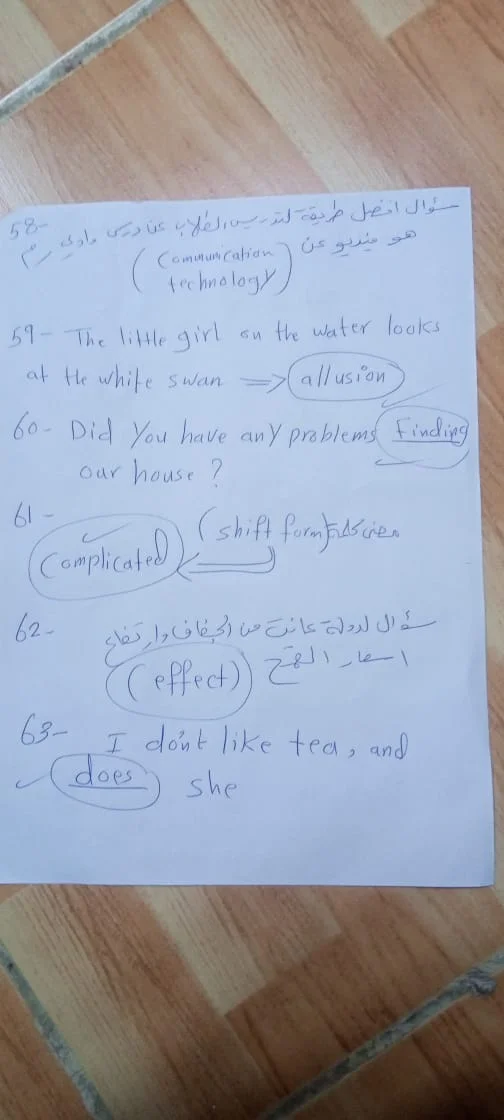 58- سؤال افضل طريقة لتدريس الطلاب عن درس وادي رم
هو فيديو عن (Communication
technology)
59- The little girl on the water looks
at the white swan => allusion
60- Did You have any problems finding
our house ?
61- (shift form) معنى كلمة
Complicated
62- سؤال لدولة عانت من الجفاف وارتفاع
اسعار القمح (effect)
63- I don't like tea, and
does she